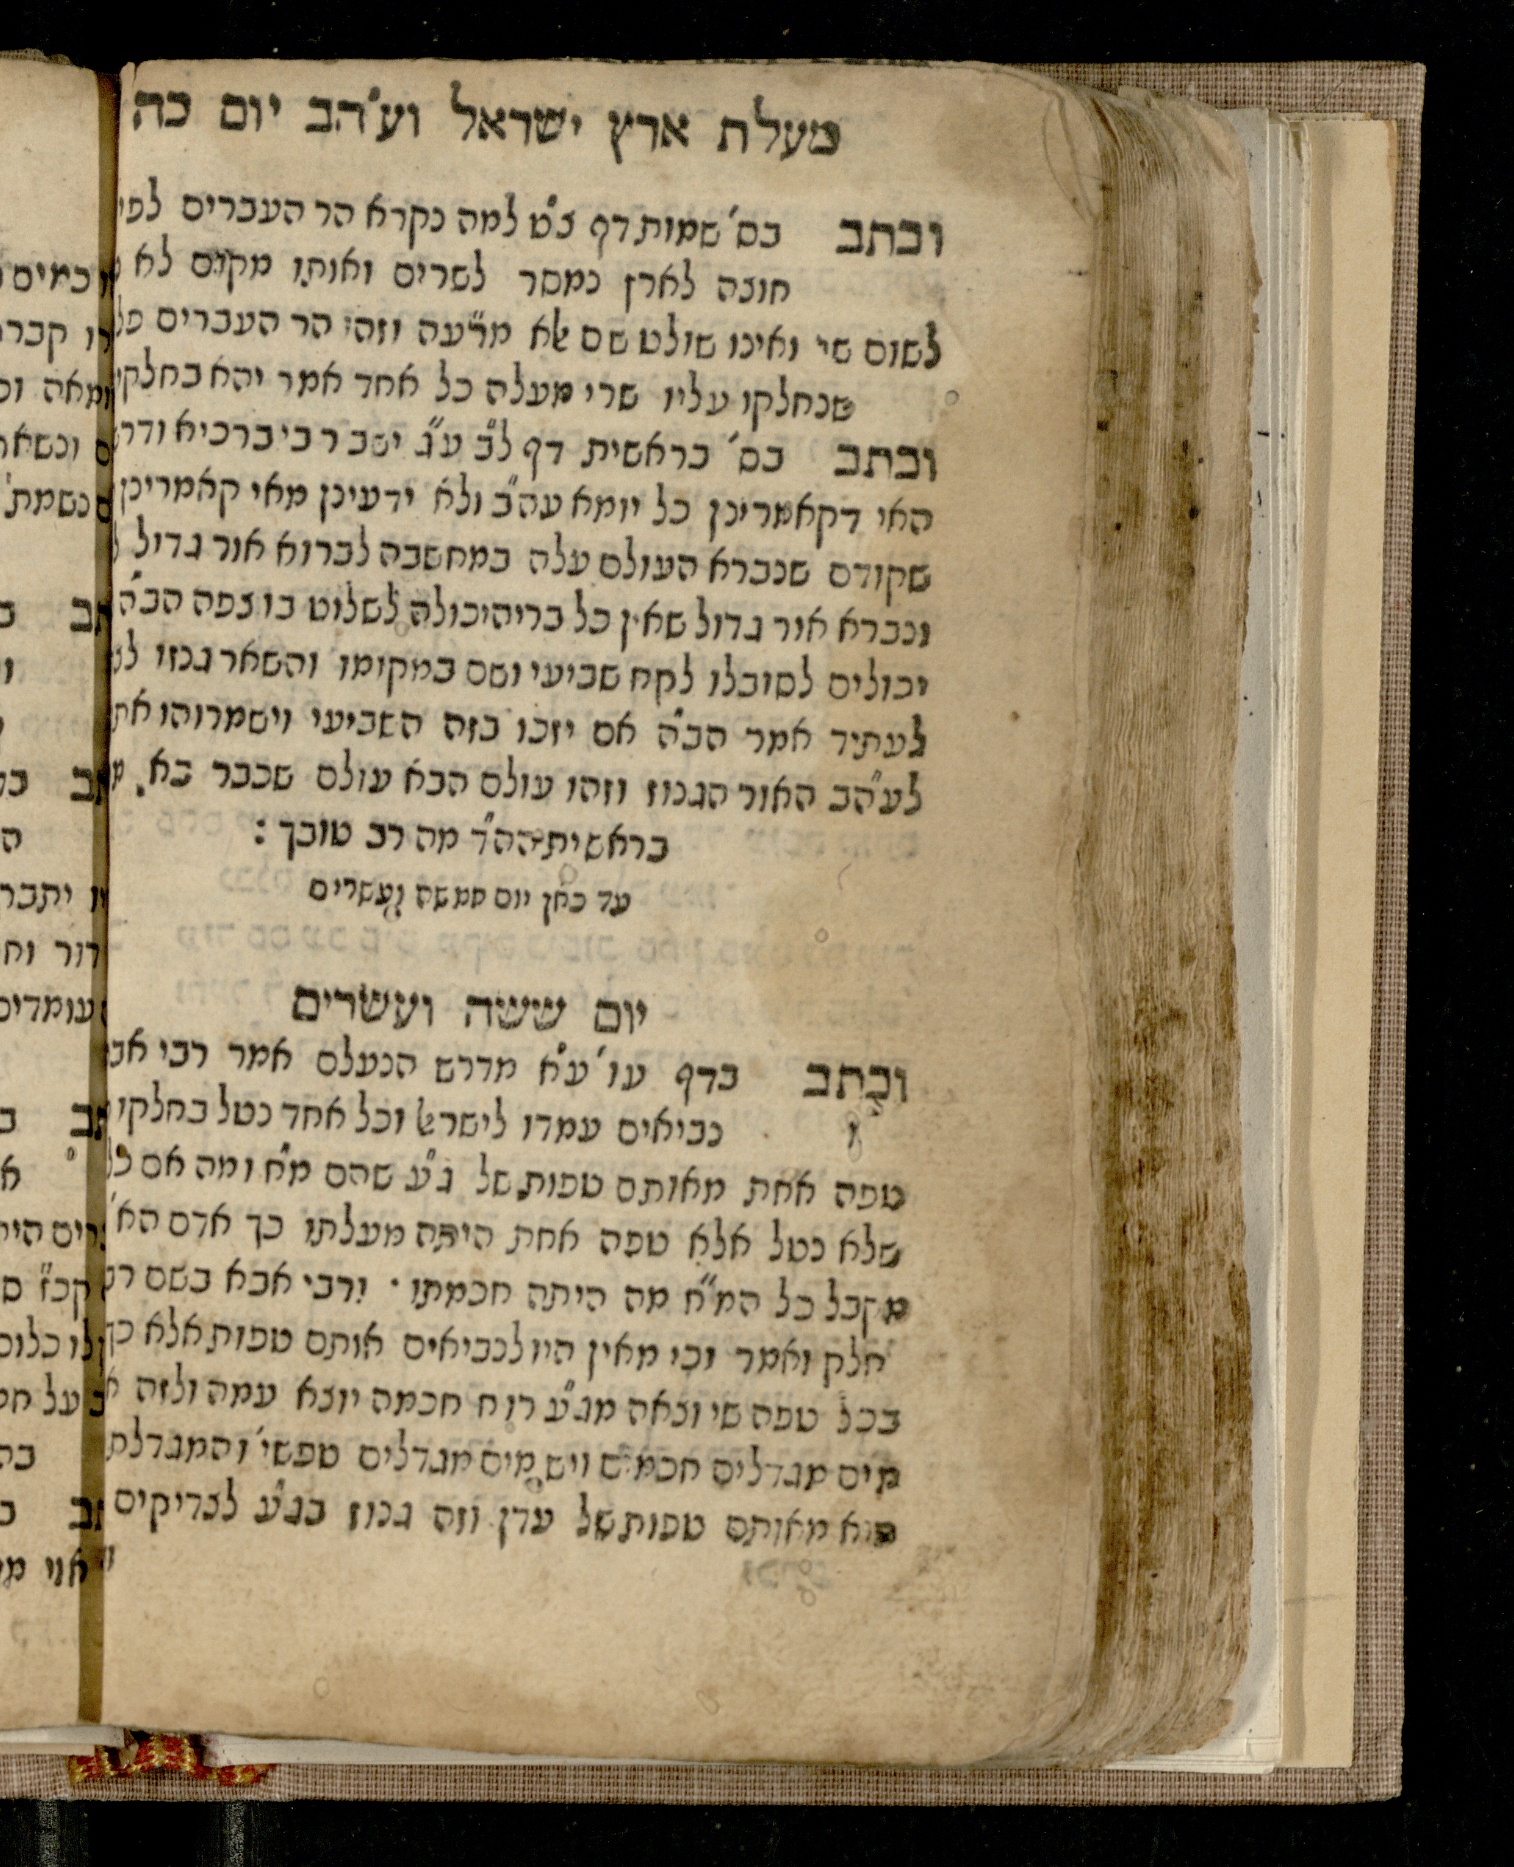 מעלת ארץ ישראל וע"הב יום כה
וכתב בס' שמות דף צ"ט למה נקרא הר העברים לפי
חוצה לארץ נמסר לשרים ואותו מקום לא
לשום שי ואינו שולט שם אלא מד"עה וזהו הר העברים
שנחלקו עליו שרי מעלה כל אחד אמר יהא בחלקי
וכתב בס' בראשית דף ל"ב ע"ג ישב רבי ברכיא ודרש
האי דקאמרינן כל יומא עה"ב ולא ידעינן מאי קאמרינן
שקודם שנברא העולם עלה במחשבה לברוא אור גדול
ונברא אור גדול שאין כל בריה יכולה לשלוט בו צפה הב"ה
יכולים לסובלו לקח שביעי ושם במקומו והשאר גנזו
לעתיד אמר הב"ה אם יזכו בזה השביעי וישמרוהו
לע"הב האור הגנוז וזהו עולם הבא עולם שכבר בא.
בראשית הה"ד מה רב טובך :
עד כאן יום חמשה ועשרים
יום ששה ועשרים
וכתב בדף עו' ע"א מדרש הנעלם אמר רבי
נביאים עמדו לישראל וכל אחד נטל בחלקו
טפה אחת מאותם טפות של ג"ע שהם מ"ח ומה אם
שלא נטל אלא טפה אחת היתה מעלתו כך אדם הא'
מקבל כל המ"ח מה היתה חכמתו . ורבי אבא בשם
חלק ואמר וכי מאין היו לנביאים אותם טפות אלא כך
בכל טפה שיוצאה מג"ע רוח חכמה יוצא עמה ולזה
מים מגדלים חכמים ויש מים מגדלים טפשי' והמגדלת
הוא מאותם טפות של עדן וזה גנוז בג"ע לצדיקים